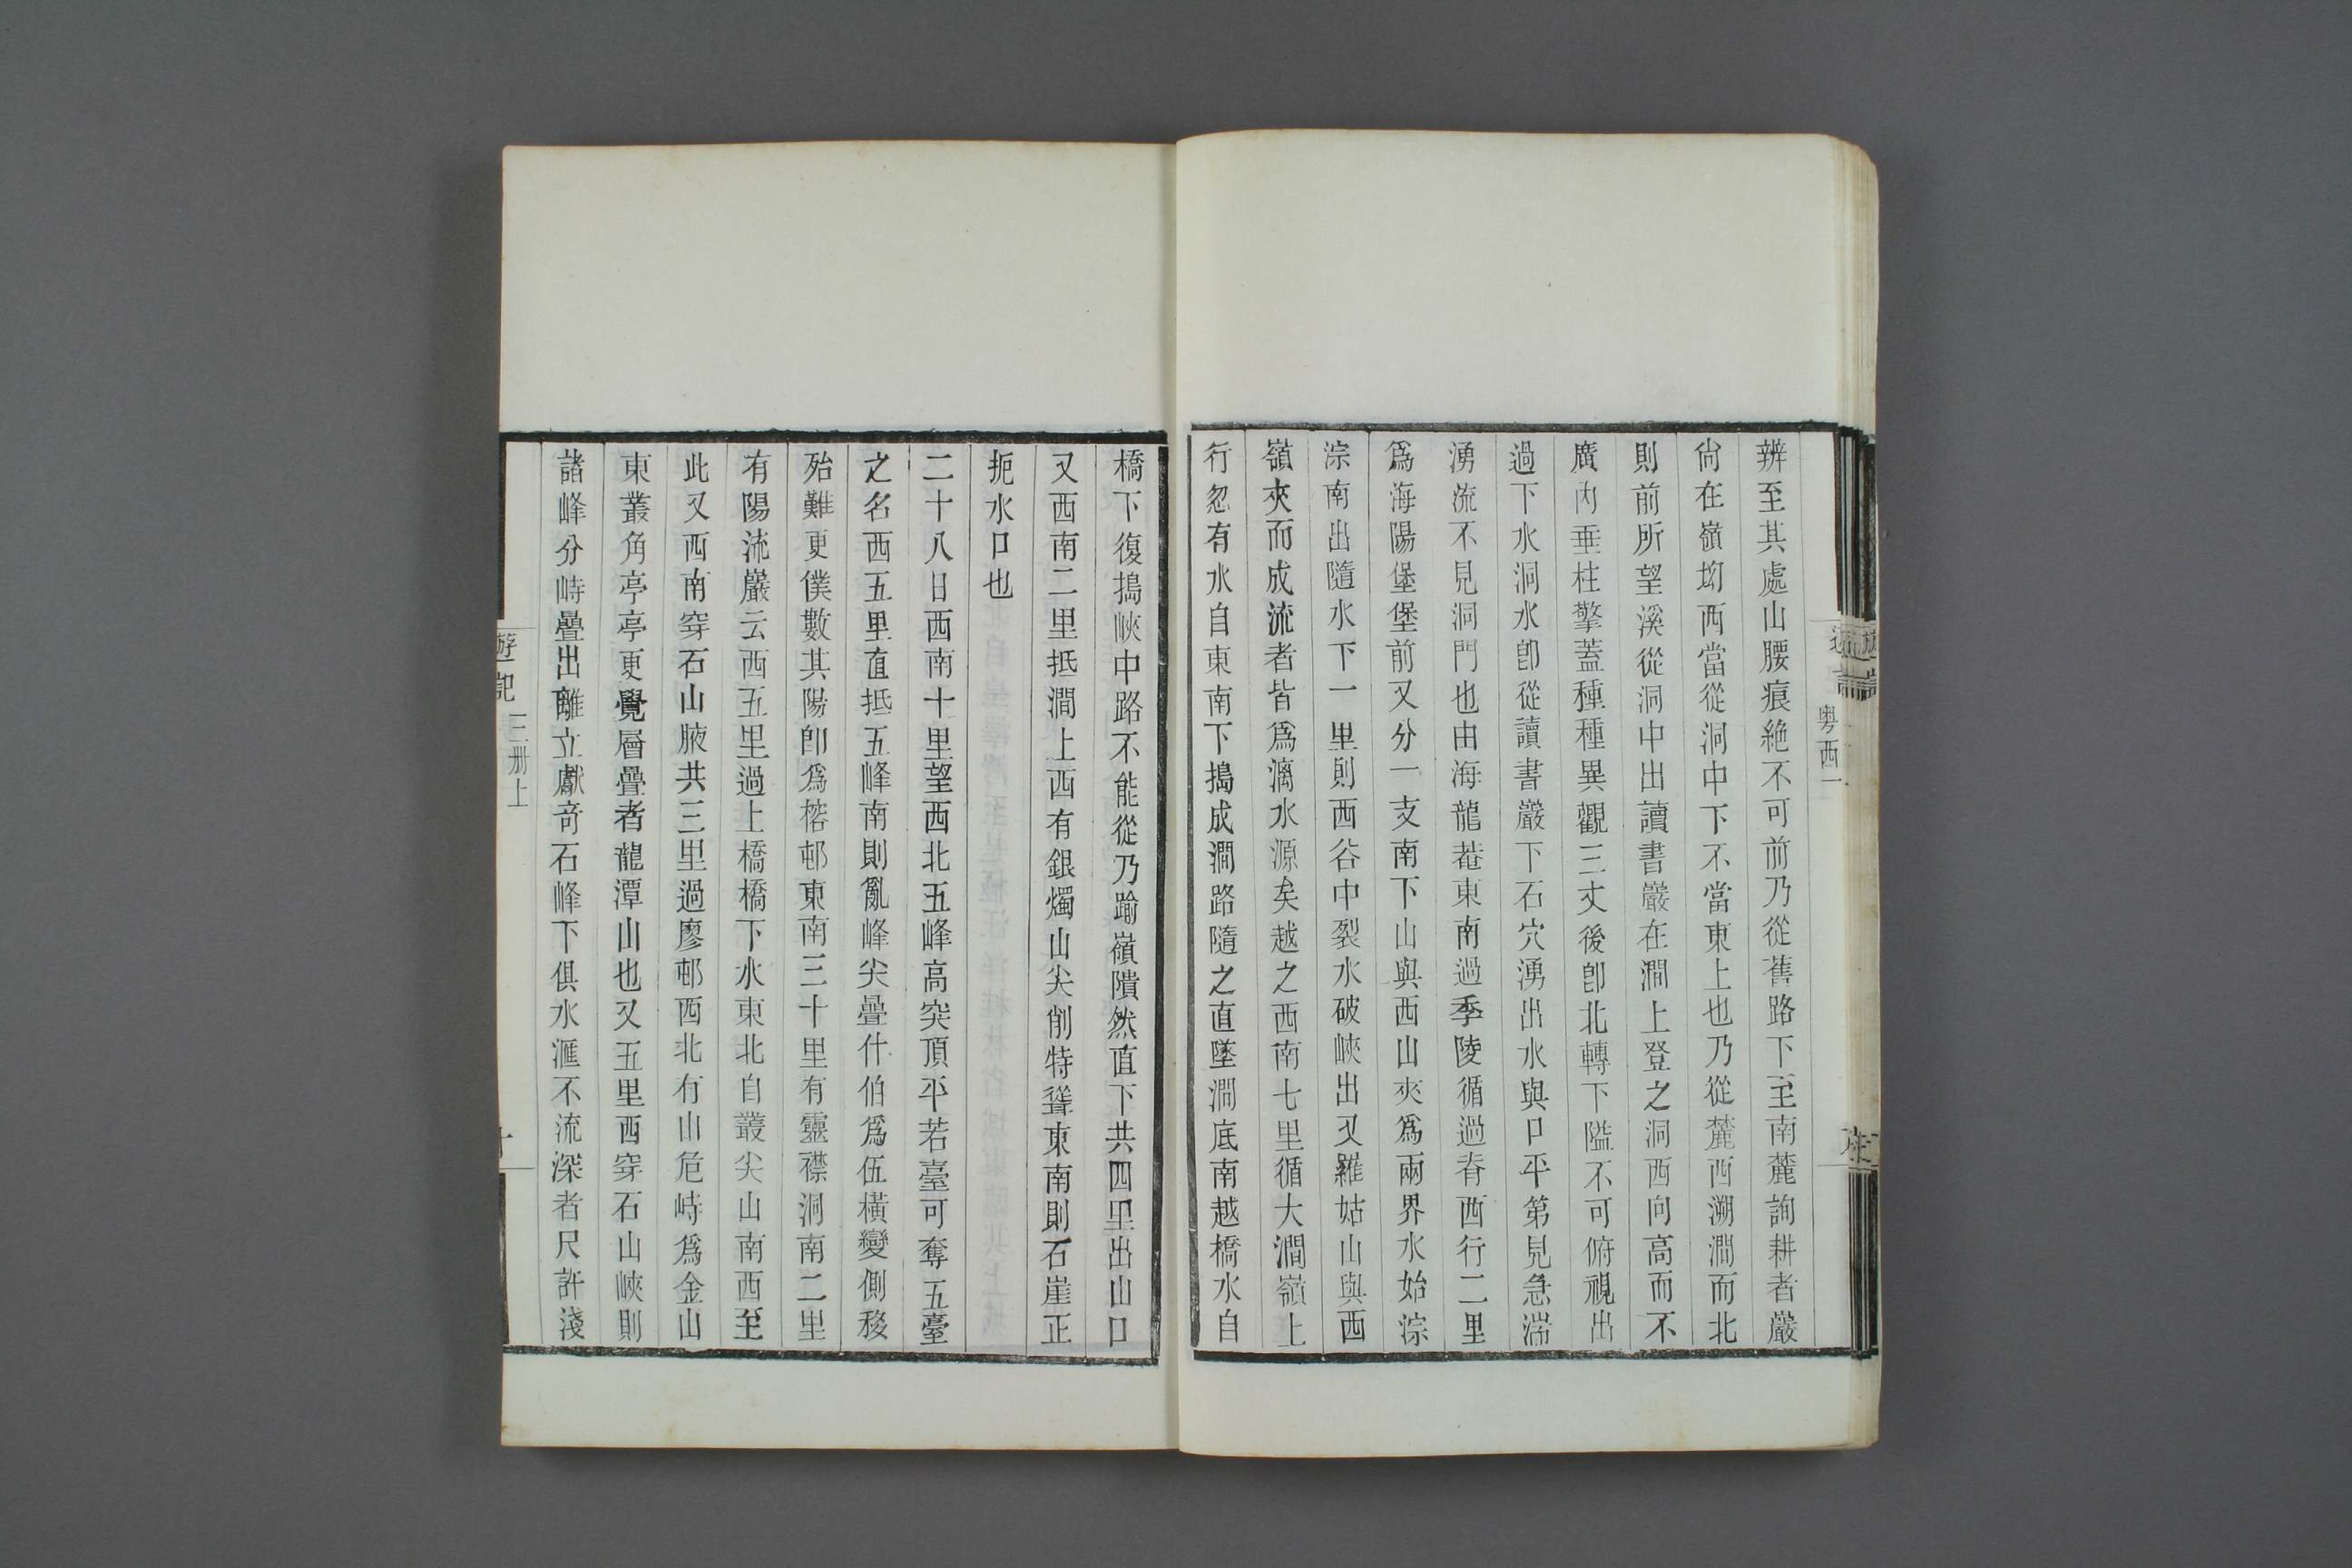 粤西一
辨至其處山腰痕絶不可前乃從舊路下至南麓詢耕者巖
尙在嶺坳西當從洞中下不當東上也乃從麓西溯澗而北
則前所望溪從洞中出讀書巖在澗上登之洞西向高而不
廣內垂柱擎蓋種種異觀三丈後卽北轉下隘不可俯視出
過下水洞水卽從讀書巖下石穴湧出水與口平第見急湍
湧流不見洞門也由海龍菴東南過季陵循過脊西行二里
爲海陽堡堡前又分一支南下山與西山夾爲兩界水始淙
淙南出隨水下一里則西谷中裂水破峽出又羅姑山與西
嶺夾而成流者皆爲漓水源矣越之西南七里循大澗嶺上
行忽有水自東南下搗成澗路隨之直墜澗底南越橋水自
橋下復搗峽中路不能從乃踰嶺隤然直下共四里出山口
又西南二里抵澗上西有銀燭山尖削特聳東南則石崖正
扼水口也
二十八日西南十里望西北五峰高突頂平若臺可奪五臺
之名西五里直抵五峰南則亂峰尖疊什伯爲伍橫變側移
殆難更僕數其陽卽爲榕邨東南三十里有靈襟洞南二里
有陽流巖云西五里過上橋橋下水東北自叢尖山南西至
此又西南穿石山腋共三里過廖邨西北有山危峙爲金山
東叢角亭亭更覺層疊者龍潭山也又五里西穿石山峽則
諸峰分峙疊出離立獻奇石峰下俱水滙不流深者尺許淺
遊記
三册上